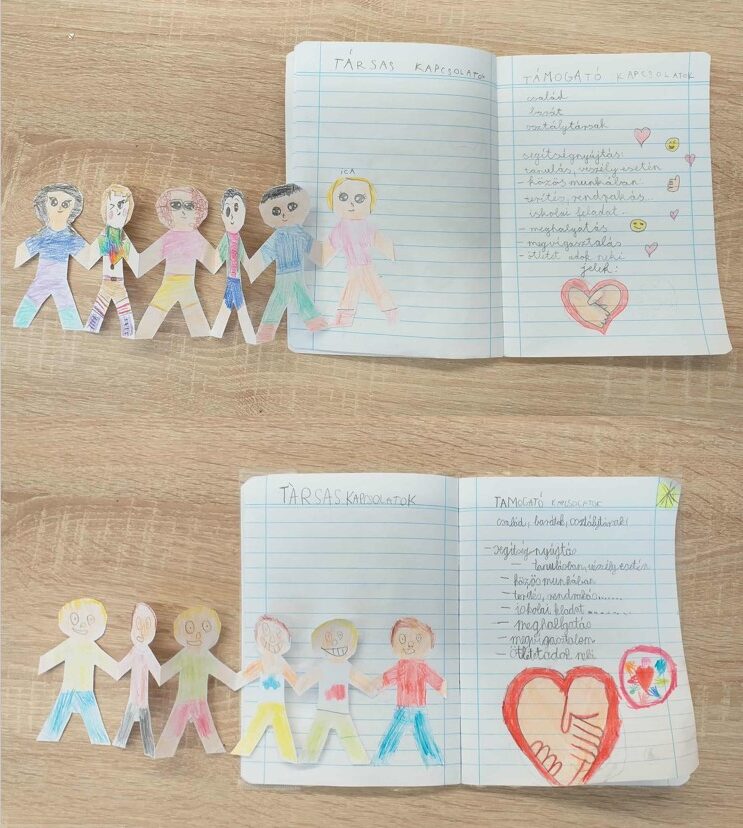 TÁRSAS KAPCSOLATOK
ICA
TÁMOGATÓ KAPCSOLATOK
család
barát
osztálytársak
segítségnyújtás:
tanulás, veszély esetén
- közös munkában
terítés, rendrakás...
iskolai feladat..
- meghalgatás
- megvigasztalás
- ötletet adok neki
jelek:
TÀRSAS KAPCSOLATOK
TAMOGATÓ KAPCSOLATOK
család, barátok, osztálytársak
- segítség nyújtás
- tanulásban, veszély esetén
- közös munkában
- terítés,
- iskolai
- meghalgatás
- megvigasztalom
- Ötletet adok neki